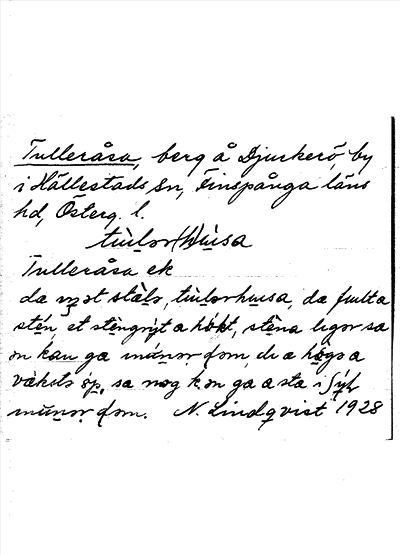 Tulleråsa, berg å Djurkerö, by
i Hällestads sn, Finspånga läns
hd, Österg. l.
tùlor(h)ùsa
Tulleråsa ek
da et stàlo, tùlorhusa, da fullt a
stén, et stèngrýt a hókt, stèna ligor sa
on kan ga múnor dom, di a hògs a
vàksts óp, sa nog kon ga a sta i
mùnor dom. N. Lindqvist 1928